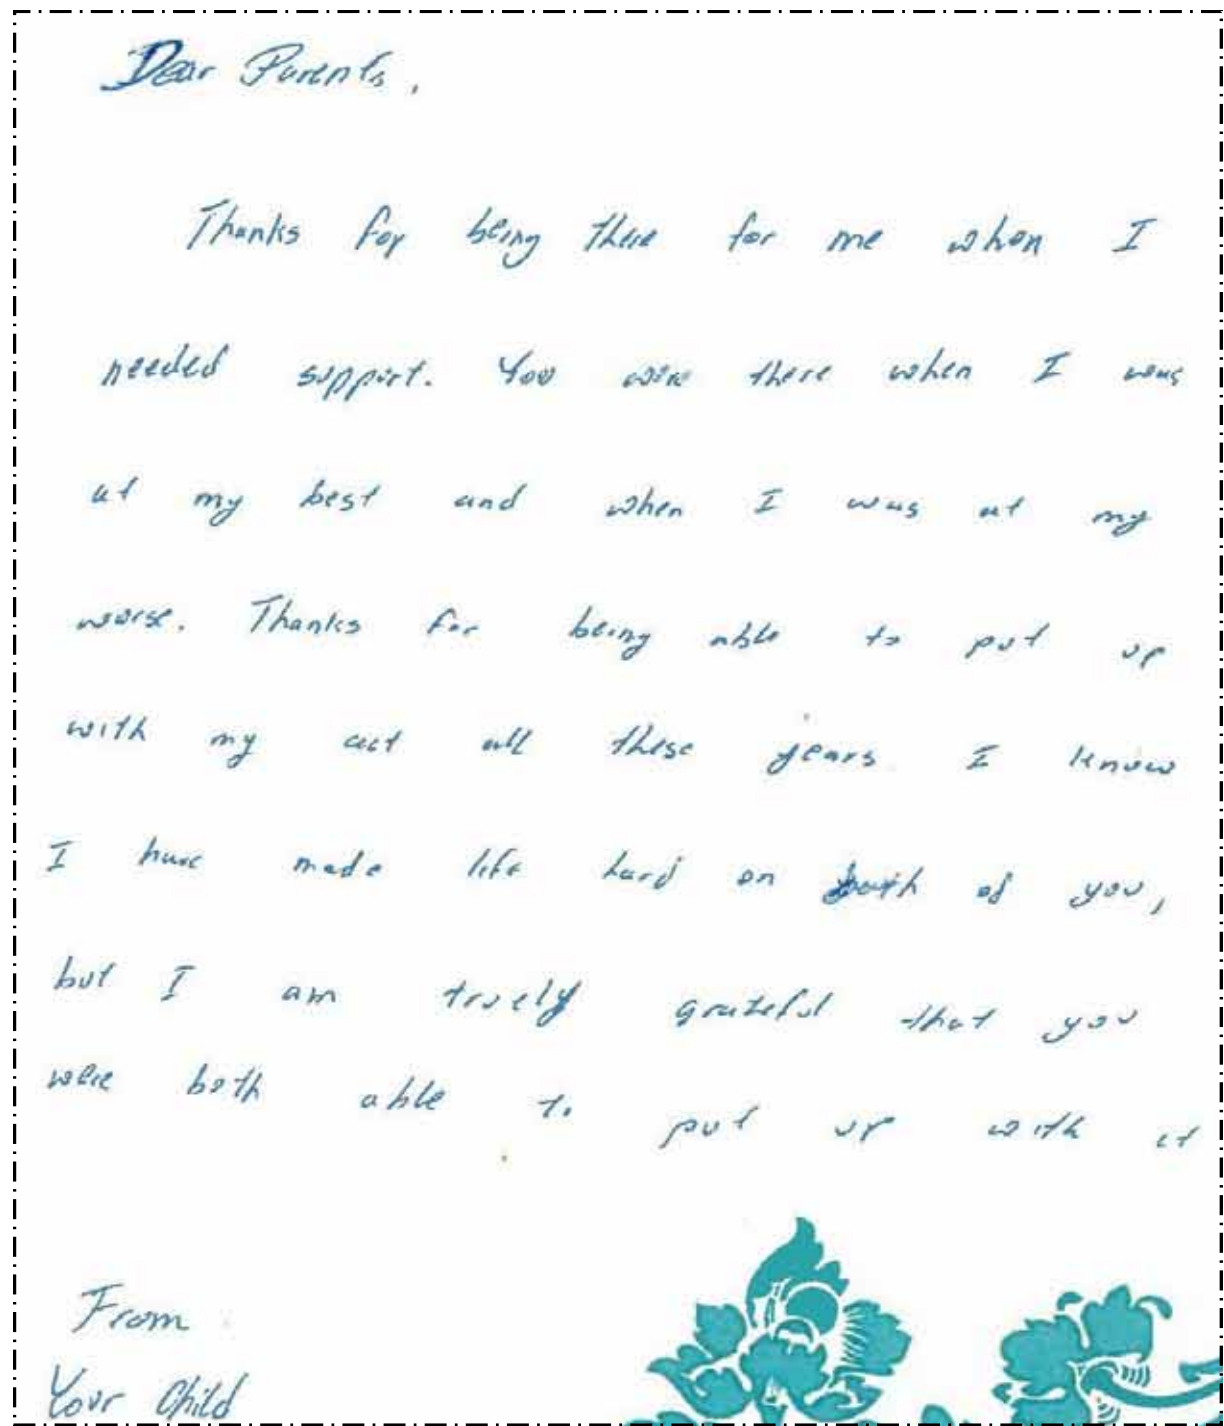 Dear Parents,
Thanks for being there for me when I
needed support. You were there when I was
at my best and when I was at my
worse. Thanks for being able to put up
with my act all these years I know
I have made life hard on both of you,
but I am truely grateful that you
were both able to put up with it
From
Your Child